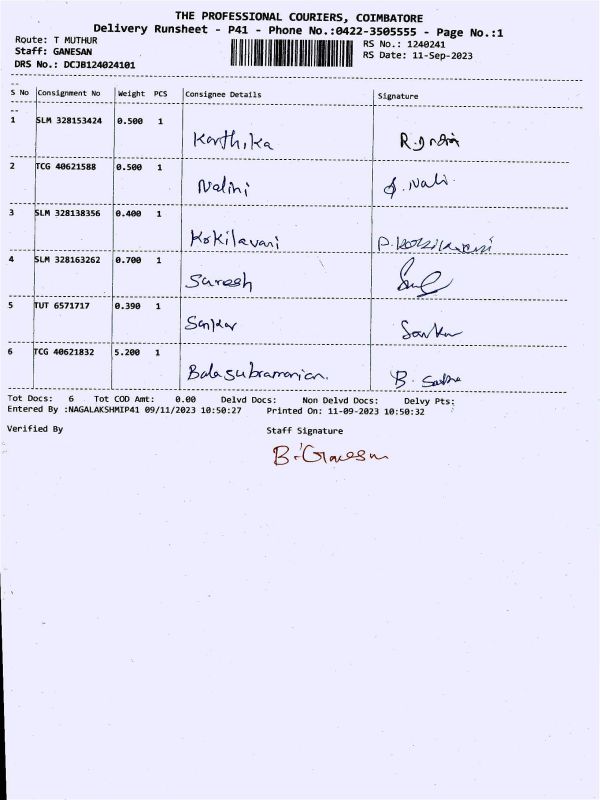 THE PROFESSIONAL COURIERS, COIMBATORE
Delivery Runsheet - P41 - Phone No.:0422-3505555 - Page No.:1
Route: T MUTHUR RS No.: 1240241
Staff: GANESAN RS Date: 11-Sep-2023
DRS No.: DCJB124024101
S No Consignment No Weight PCS Consignee Details Signature
1 SLM 328153424 0.500 1
Karthika
2 TCG 40621588 0.500 1
Nalini
3 SLM 328138356 0.400 1
Kokilavani
4 SLM 328163262 0.700 1
Suresh
5 TUT 6571717 0.390 1
Sankar
6 TCG 40621832 5.200 1
Balasubramanian.
Tot Docs: 6 Tot COD Amt: 0.00 Delvd Docs: Non Delvd Docs: Delvy Pts:
Entered By :NAGALAKSHMIP41 09/11/2023 10:50:27 Printed On: 11-09-2023 10:50:32
Verified By Staff Signature
B. Ganesan